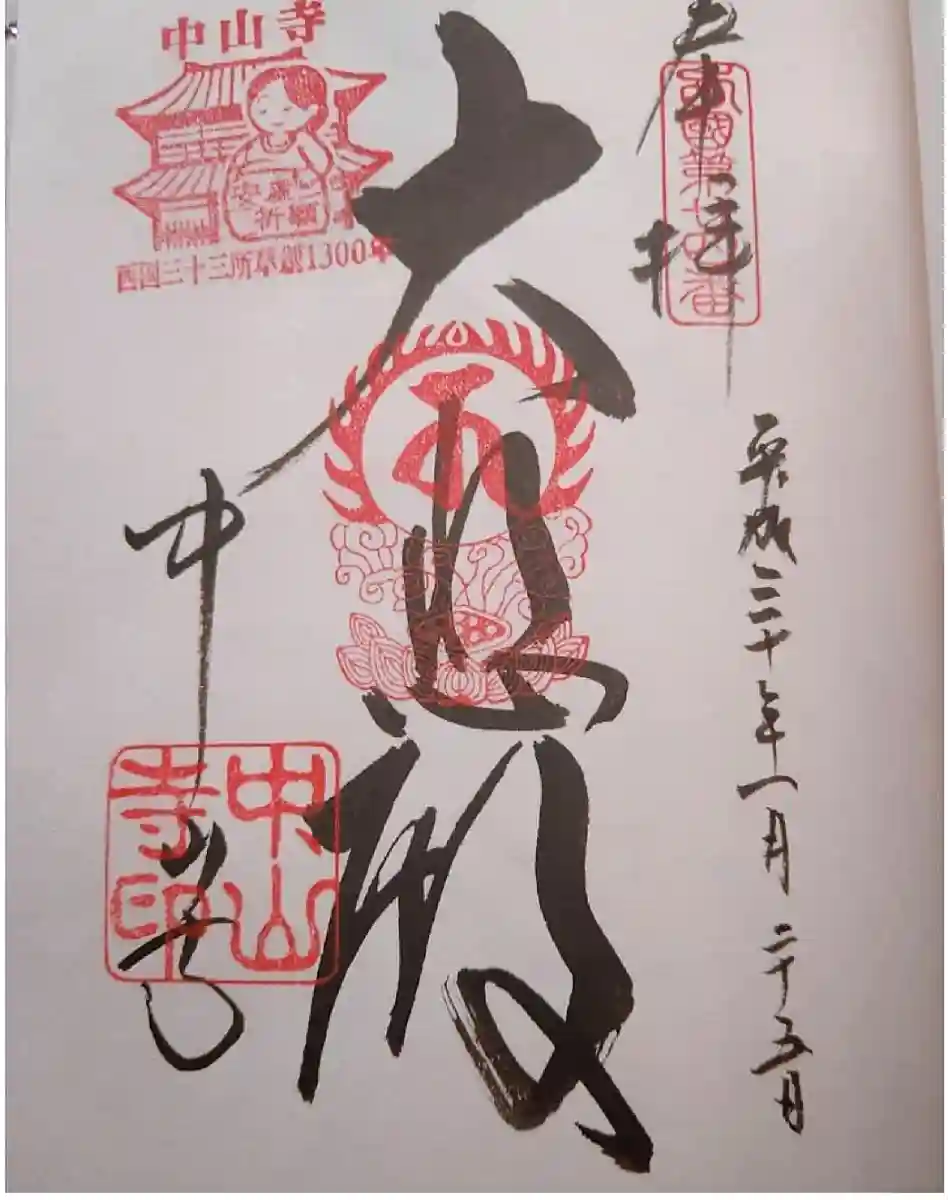 奉拝
西國第廿四番
平成三十年一月二十五日
大悲殿
中山寺
中山寺
安産
祈願
西国三十三所草創1300年
中山
寺印